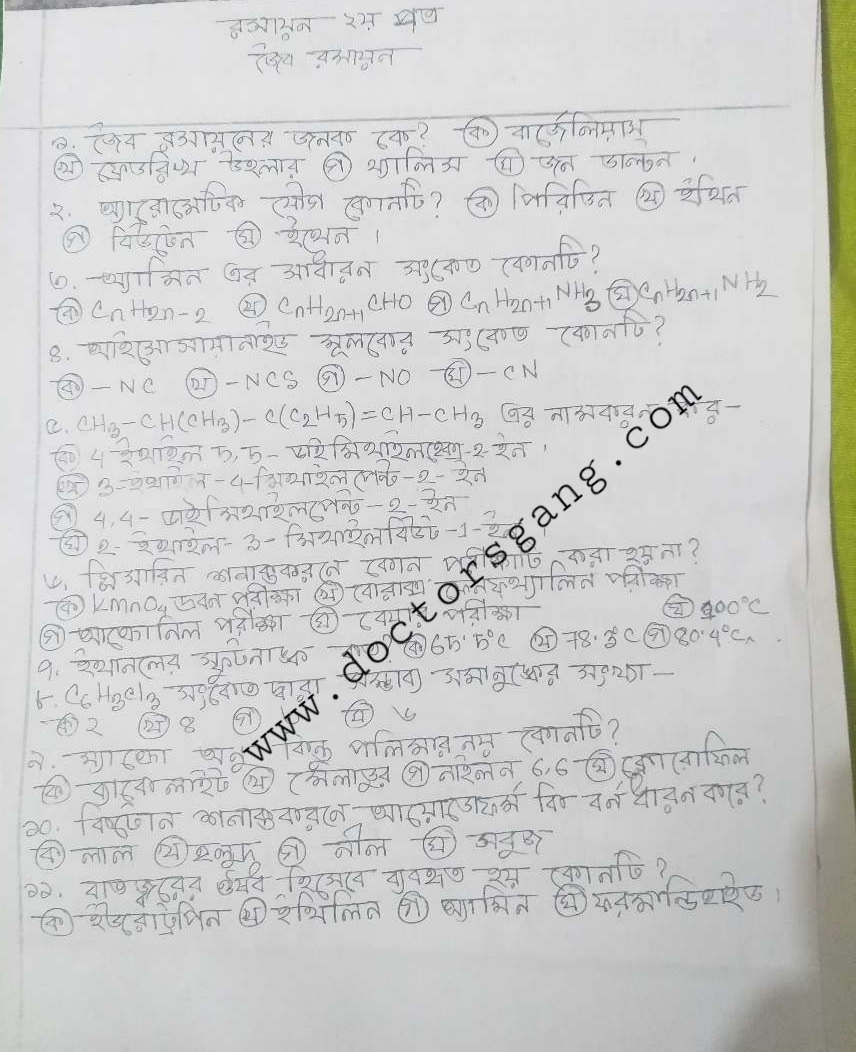 রসায়ন ২য় পত্র
জৈব রসায়ন
১. জৈব রসায়নের জনক কে? (ক) বার্জেলিয়াস
(খ) ফ্রেডরিখ উহলার (গ) থ্যালিস (ঘ) জন ডাল্টন।
২. অ্যারোমেটিক যৌগ কোনটি? (ক) পিরিডিন (খ) ইথিন
(গ) বিউটেন (ঘ) ইথেন।
৩. অ্যামিন এর সাধারন সংকেত কোনটি?
(ক) CnH2n-2 (খ) CnH2n+1CHO (গ) CnH2n+1NH3 (ঘ) CnH2n+1NH2
৪. আইসোসায়ানাইড মূলকের সংকেত কোনটি?
(ক) -NC (খ) -NCS (গ) -NO (ঘ) -CN
৫. CH3-CH(CH3)-C(C2H5)=CH-CH3 এর নামকরন কর-
(ক) 4-ইথাইল 5,5-ডাই মিথাইল -2-ইন।
(খ) 3-ইথাইল-4-মিথাইলপেন্ট-2-ইন
(গ) 4,4-ডাইমিথাইলপেন্ট-2-ইন
(ঘ) 2-ইথাইল-3-মিথাইলবিউট-1-ইন
৬. গ্লিসারিন শনাক্তকরনে কোন পরীক্ষাটি করা হয়না?
(ক) KMnO4 দ্রবন পরীক্ষা (খ) বোরাক্স ফেনফথ্যালিন পরীক্ষা
(গ) অ্যাক্রোলিন পরীক্ষা (ঘ) বেয়ার পরীক্ষা
৭. ইথানলের স্ফুটনাঙ্ক কত? (ক) 65.5°C (খ) 78.3°C (গ) 80.4°C (ঘ) 100°C
৮. C6H3Cl3 সংকেত দ্বারা সম্ভাব্য সমানুকের সংখ্যা-
(ক) ২ (খ) ৪ (গ) (ঘ) ৬
৯. ম্যাক্রো অনু কিন্তু পলিমার নয় কোনটি?
(ক) ব্যাকেলাইট (খ) মেলাডুর (গ) নাইলন 6,6 (ঘ) ক্লোরোফিল
১০. কিটোন শনাক্তকরনে আয়োডোফর্ম কি বর্ন ধারন করে?
(ক) লাল (খ) হলুদ (গ) নীল (ঘ) সবুজ
১১. বাতজ্বরের ঔষধ হিসেবে ব্যবহৃত হয় কোনটি?
(ক) ইউরোট্রপিন (খ) ইথিলিন (গ) অ্যামিন (ঘ) ফরমালডিহাইড।
www.doctorsgang.com